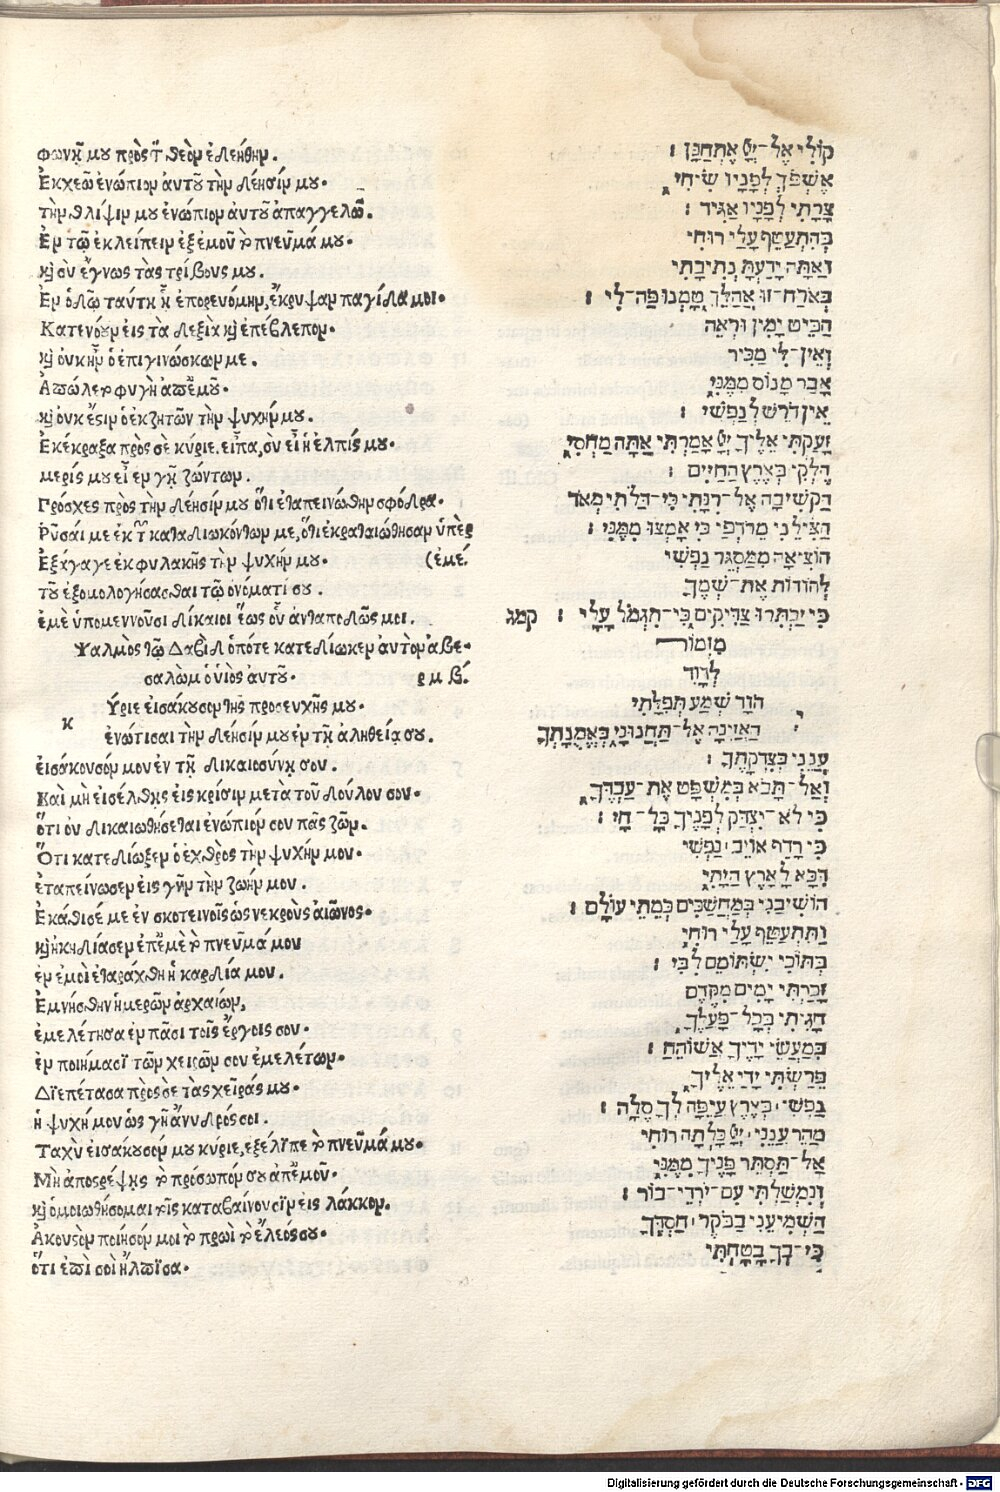 φωνῇ μου πρὸς τ̄ θεὸν ἐδεήθην.
Ἐκχεῶ ἐνώπιον ἀυτοῦ τὴν δέησίν μου.
τὴν θλίψιν μου ἐνώπιον ἀυτοῦ ἀπαγγελῶ.
Ἐν τῷ ἐκλείπειν ἐξ ἐμοῦ τὸ πνεῦμά μου.
κὶ σὺ ἔγνως τὰς τρίβους μου.
Ἐν ὁδῷ ταύτῃ ᾗ ἐπορευόμην, ἔκρυψαν παγίδα μοι.
Κατενόουν εἰς τὰ δεξιὰ κὶ ἐπέβλεπον.
κὶ ὀυκ ἦν ὁ ἐπιγινώσκων με.
Ἀπώλετο φυγὴ ἀπ' ἐμοῦ.
κὶ ὀυκ ἔστιν ὁ ἐκζητῶν τὴν ψυχήν μου.
Ἐκέκραξα πρὸς σὲ κύριε, εἶπα, σὺ εἶ ἡ ἐλπίς μου.
μερίς μου εἶ ἐν γῇ ζώντων.
Πρόσχες πρὸς τὴν δέησίν μου ὅτι ἐταπεινώθην σφόδρα.
Ῥῦσαί με ἐκ τ̄ καταδιωκόντων με, ὅτι ἐκραταιώθησαν ὑπὲρ
Ἐξάγαγε ἐκ φυλακῆς τὴν ψυχήν μου. (ἐμέ.
τοῦ ἐξομολογήσασθαι τῷ ὀνόματί σου.
ἐμὲ ὑπομεννοῦσι δίκαιοι ἕως οὗ ἀνταποδῶς μοι.
Ψαλμὸς τῷ Δαβὶδ ὁπότε κατεδίωκεν ἀυτὸν ἀβε-
σαλὼμ ὁ ὑιὸς ἀυτοῦ. ρ μ β΄.
κ Ύριε εἰσάκουσον τῆς προσευχῆς μου.
ἐνώτισαι τὴν δέησίν μου ἐν τῇ ἀληθείᾳ σου.
ἐισάκουσόν μου ἐν τῇ δικαιοσύνῃ σου.
Καὶ μὴ ἐισέλθῃς ἐις κρίσιν μετὰ τοῦ δούλου σου.
ὅτι ὀυ δικαιωθήσεται ἐνώπιόν σου πᾶς ζῶν.
Ὅτι κατεδίωξεν ὁ ἐχθρὸς τὴν ψυχήν μου.
ἐταπείνωσεν ἐις γῆν τὴν ζωήν μου.
Ἐκάθισέ με ἐν σκοτεινοῖς ὡς νεκροὺς ἀιῶνος.
κὶ ἠκηδίασεν ἐπ' ἐμὲ τὸ πνεῦμά μου
ἐν ἐμοὶ ἐταράχθη ἡ καρδία μου.
Ἐμνήσθην ἡμερῶν ἀρχαίων,
ἐμελέτησα ἐν πᾶσι τοῖς ἔργοις σου.
ἐν ποιήμασϊ τῶν χειρῶν σου ἐμελέτων.
Διεπέτασα πρὸς σὲ τὰς χεῖράς μου.
ἡ ψυχή μου ὡς γῆ ἄνυδρός σοι.
Ταχὺ ἐισάκουσόν μου κύριε, ἐξέλιπε τὸ πνεῦμά μου.
Μὴ ἀποστρέψῃς τὸ πρόσωπόν σου ἀπ' ἐμοῦ.
κὶ ὁμοιωθήσομαι τοῖς καταβαίνουσϊν εἰς λάκκον.
Ἀκουστὸν ποίησόν μοι τὸ πρωὶ τὸ ἔλεός σου.
ὅτι ἐπὶ σοὶ ἤλπισα.
קוֹלִי אֶל־יְיָ אֶתְחַנָּן :
אֶשְׁפֹּךְ לְפָנָיו שִׂיחִי
צָרָתִי לְפָנָיו אַגִּיד :
בְּהִתְעַטֵּף עָלַי רוּחִי
וְאַתָּה יָדַעְתָּ נְתִיבָתִי
בְּאֹרַח־זוּ אֲהַלֵּךְ טָמְנוּ פַּח־לִי :
הַבֵּיט יָמִין וּרְאֵה
וְאֵין־לִי מַכִּיר
אָבַד מָנוֹס מִמֶּנִּי
אֵין דֹּרֵשׁ לְנַפְשִׁי :
זָעַקְתִּי אֵלֶיךָ יְיָ אָמַרְתִּי אַתָּה מַחְסִי
חֶלְקִי בְּאֶרֶץ הַחַיִּים :
הַקְשִׁיבָה אֶל־רִנָּתִי כִּי־דַלֹּתִי מְאֹד
הַצִּילֵנִי מֵרֹדְפַי כִּי אָמְצוּ מִמֶּנִּי :
הוֹצִיאָה מִמַּסְגֵּר נַפְשִׁי
לְהוֹדוֹת אֶת־שְׁמֶךָ
בִּי יַכְתִּרוּ צַדִּיקִים כִּי־תִגְמֹל עָלָי : קמג
מִזְמוֹר
לְדָוִד
יְהוָה שְׁמַע תְּפִלָּתִי
הַאֲזִינָה אֶל־תַּחֲנוּנַי בֶּאֱמֻנָתְךָ
עֲנֵנִי בְּצִדְקָתֶךָ :
וְאַל־תָּבֹא בְמִשְׁפָּט אֶת־עַבְדֶּךָ
כִּי לֹא־יִצְדַּק לְפָנֶיךָ כָל־חָי :
כִּי רָדַף אוֹיֵב נַפְשִׁי
דִּכָּא לָאָרֶץ חַיָּתִי
הוֹשִׁיבַנִי בְמַחֲשַׁכִּים כְּמֵתֵי עוֹלָם :
וַתִּתְעַטֵּף עָלַי רוּחִי
בְּתוֹכִי יִשְׁתּוֹמֵם לִבִּי :
זָכַרְתִּי יָמִים מִקֶּדֶם
הָגִיתִי בְכָל־פָּעֳלֶךָ
בְּמַעֲשֵׂי יָדֶיךָ אֲשׂוֹחֵחַ :
פֵּרַשְׂתִּי יָדַי אֵלֶיךָ
נַפְשִׁי כְּאֶרֶץ עֲיֵפָה לְךָ סֶלָה :
מַהֵר עֲנֵנִי יְיָ כָּלְתָה רוּחִי
אַל־תַּסְתֵּר פָּנֶיךָ מִמֶּנִּי
וְנִמְשַׁלְתִּי עִם־יֹרְדֵי־בוֹר :
הַשְׁמִיעֵנִי בַבֹּקֶר חַסְדֶּךָ
כִּי־בְךָ בָטָחְתִּי
Digitalisierung gefördert durch die Deutsche Forschungsgemeinschaft - DFG